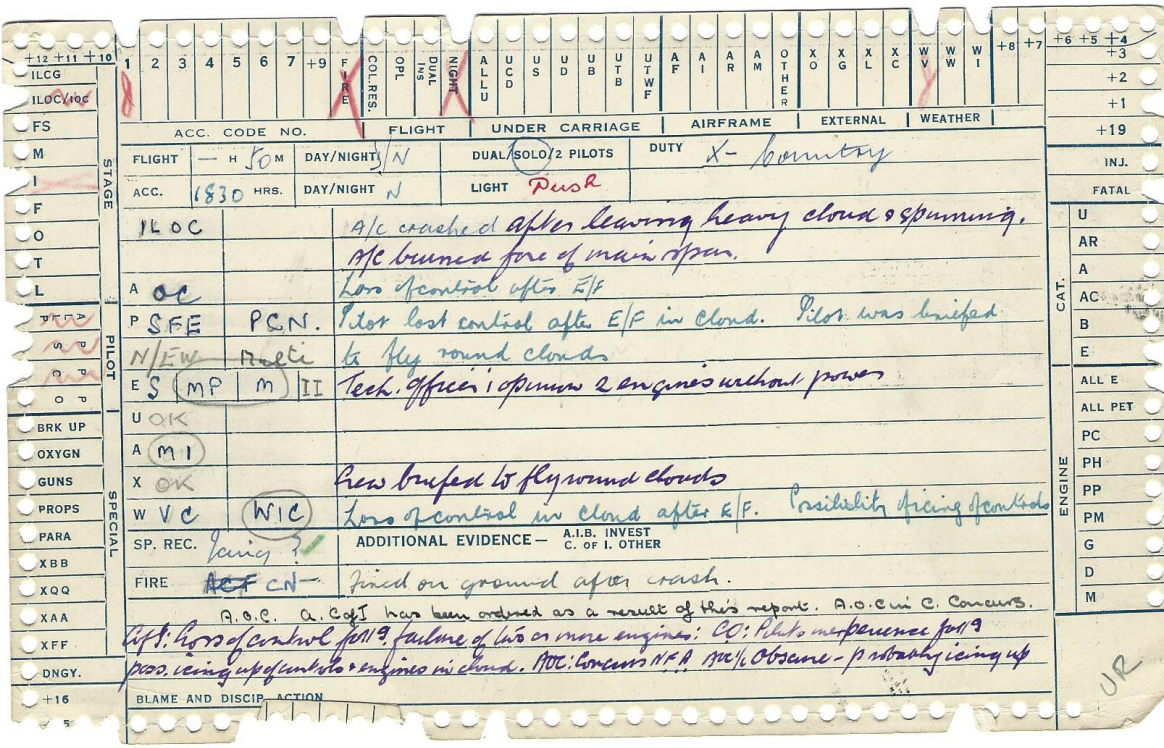 +12 +11 +10 1 2 3 4 5 6 7 +9 FIRE COL.RES. OPL DUAL INS NIGHT ALLU UCD US UD UB UTB UTWF AF AI AR AM OTHER XO XG XL XC WV WW WI +8 +7 +6 +5 +4
ILCG +3
ILOC/IOC +2
FS +1
ACC. CODE NO. FLIGHT UNDER CARRIAGE AIRFRAME EXTERNAL WEATHER +19
M FLIGHT — H 50 M DAY/NIGHT N DUAL/SOLO/2 PILOTS DUTY X-Country INJ.
I STAGE ACC. 1830 HRS. DAY/NIGHT N LIGHT Dusk FATAL
F ILOC A/c crashed after leaving heavy cloud & spinning. U
O A/c burned fore of main spar. AR
T A OC Loss of control after E/F A
L P SFE PCN. Pilot lost control after E/F in cloud. Pilot was briefed CAT. AC
PILOT N/EW Multi to fly round clouds B
E S MP M II Tech. Officer's opinion 2 engines without power E
U OK ALL E
BRK UP A MI ALL PET
OXYGN X OK Crew briefed to fly round clouds PC
GUNS W VC WIC Loss of control in cloud after E/F. Possibility of icing of controls ENGINE PH
PROPS SPECIAL SP. REC. Icing ? ADDITIONAL EVIDENCE— A.I.B. INVEST PP
C. OF I. OTHER PM
PARA FIRE ACF CN— Fired on ground after crash. G
XBB A.O.C. A. C of I has been ordered as a result of this report. A.O.C in C. Concurs. D
XQQ C of I: Loss of control foll'g failure of two or more engines: CO: Pilots inexperience foll'g M
XAA poss. icing up of controls & engines in cloud. AOC: Concurs NFA Obscure - probably icing up
XFF
DNGY. UR
+16 BLAME AND DISCIP. ACTION